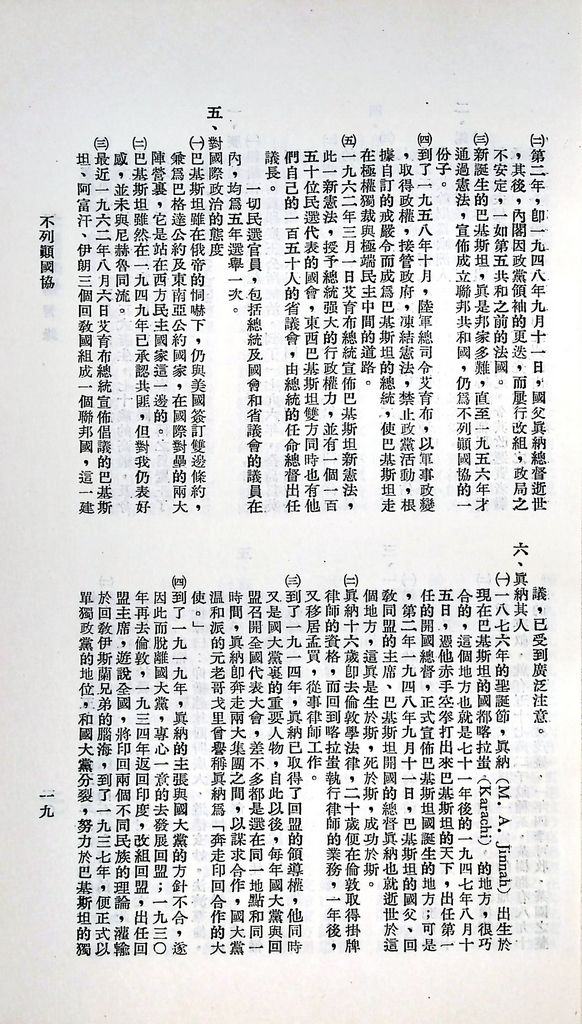 ㈡第二年,卽一九四八年九月十一日,國父眞納總督逝世
,其後,內閣因政黨領袖的更迭,而屢行改組,政局之
不安定,一如第五共和之前的法國。
㈢新誕生的巴基斯坦,眞是邦家多難,直至一九五六年才
通過憲法,宣佈成立聯邦共和國,仍爲不列顚國協的一
份子。
㈣到了一九五八年十月,陸軍總司令艾育布,以軍事政變
,取得政權,接管政府,凍結憲法,禁止政黨活動,根
據自訂的戒嚴令而成爲巴基斯坦的總統,使巴基斯坦走
在極權獨裁與極端民主中間的道路。
㈤一九六二年三月一日艾育布總統宣佈巴基斯坦新憲法,
此一新憲法,授予總統强大的行政權力,並有一個一百
五十位民選代表的國會,東西巴基斯坦雙方同時也有他
們自己的一百五十人的省議會,由總統的任命總督出任
議長。
一切民選官員,包括總統及國會和省議會的議員在
內,均爲五年選舉一次。
五、對國際政治的態度
㈠巴基斯坦雖在俄帝的恫嚇下,仍與美國簽訂雙邊條約,
兼爲巴格達公約及東南亞公約國家,在國際對壘的兩大
陣營裏,它是站在西方民主國家這一邊的。
㈡巴基斯坦雖然在一九四九年已承認共匪,但對我仍表好
感,並未與尼赫魯同流。
㈢最近一九六二年八月六日艾育布總統倡議的巴基斯
坦、阿富汗、伊朗三個回敎國組成一個聯邦國,這一建
議,已受到廣泛注意。
六、眞納其人
㈠一八七六年的聖誕節,眞納(M. A. Jinnah)出生於
現在巴基斯坦的國都喀拉蚩(Karachi)的地方,很巧
合的,這個地方也就是七十一年後的一九四七年八月十
五日,憑他赤手空拳打出來巴基斯坦的天下,出任第一
任的開國總督,正式宣佈巴基斯坦國誕生的地方;可是
,第二年一九四八年九月十一日,巴基斯坦的國父、回
敎同盟的主席、巴基斯坦開國的總督眞納也就逝世於這
個地方,這眞是生於斯,死於斯,成功於斯。
㈡眞納十六歲卽去倫敦學法律,二十歲便在倫敦取得掛牌
律師的資格,而回到喀拉蚩執行律師的業務,一年後,
又移居孟買,從事律師工作。
㈢到了一九一四年,眞納已取得了回盟的領導權,他同時
又是國大黨裏的重要人物,自此以後,每年國大黨與回
盟召開全國代表大會,差不多都是選在同一地點和同一
時間,眞納卽奔走兩大集團之間,以謀求合作,國大黨
溫和派的元老哥戈里曾譽稱眞納爲「奔走印回合作的大
使。」
㈣到了一九一九年,眞納的主張與國大黨的方針不合,遂
因此而脫離國大黨,專心一意的去發展回盟;一九三〇
年再去倫敦,一九三四年返回印度,改組回盟,出任回
盟主席,遊說全國,將印回兩個不同民族的理論,灌輸
於回敎伊斯蘭兄弟的腦海,到了一九三七年,便正式以
單獨政黨的地位,和國大黨分裂,努力於巴基斯坦的獨
不列顚國協
一九